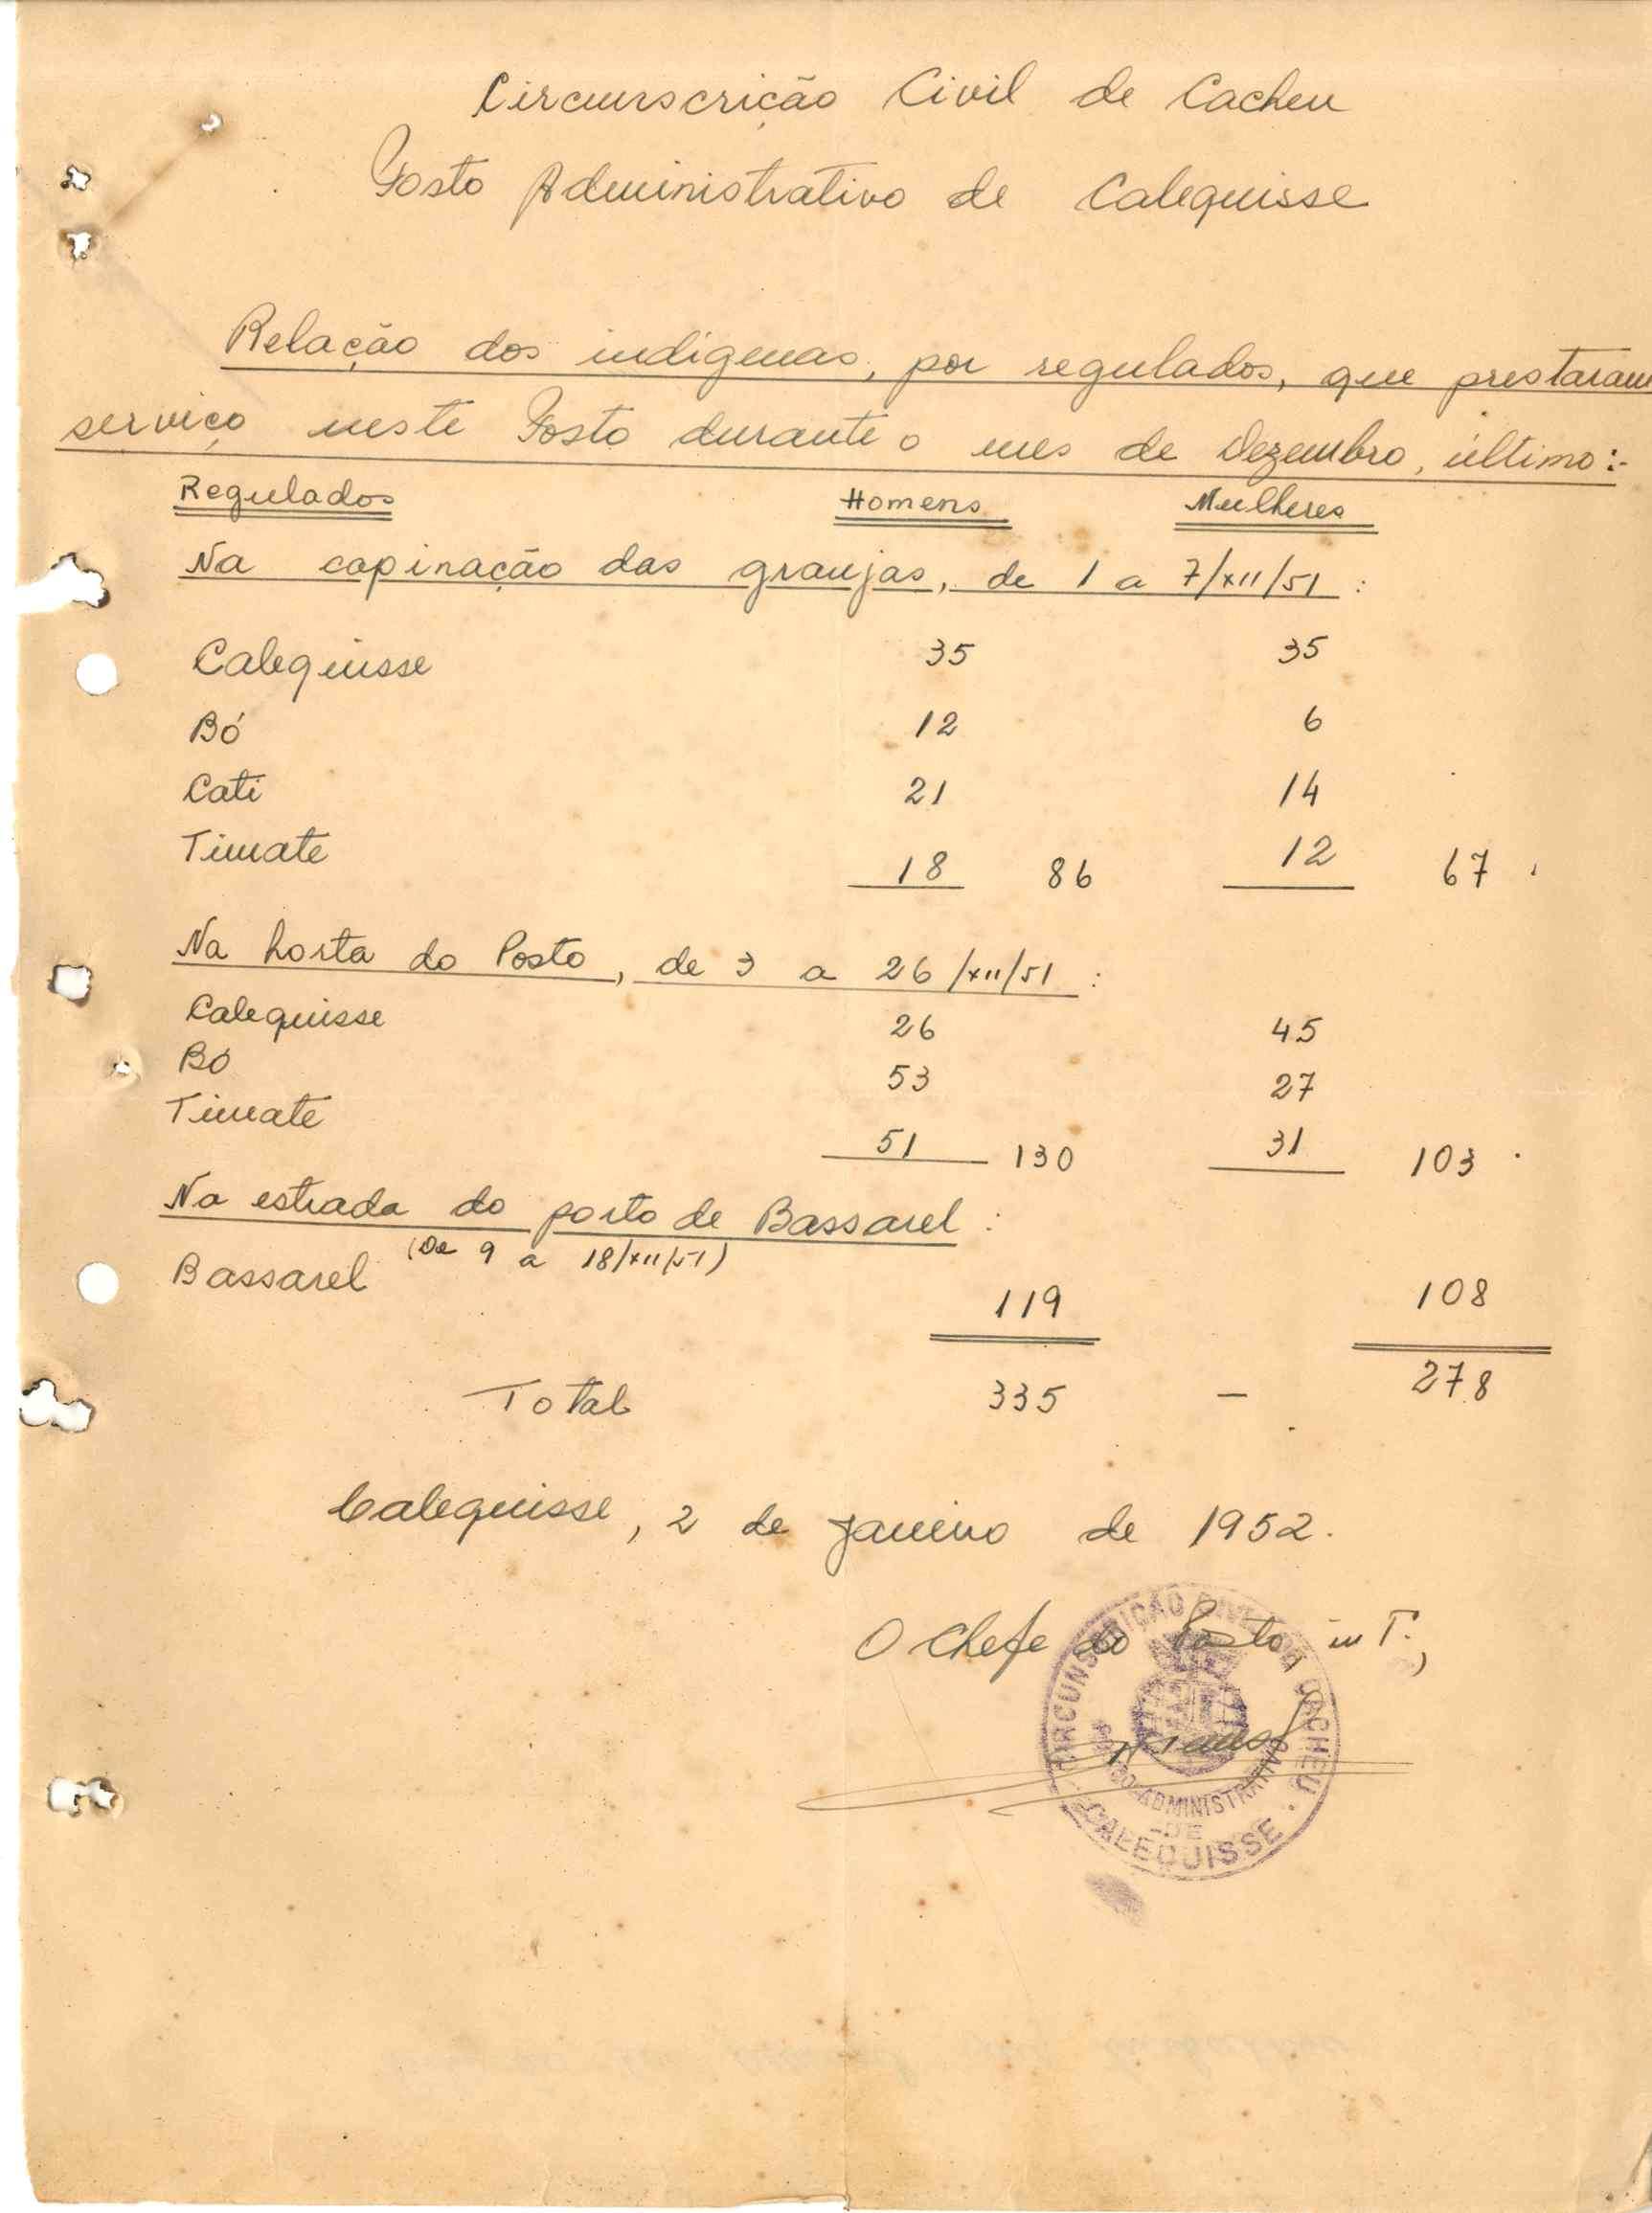 Circunscrição Civil de Cacheu
Posto Administrativo de Calequisse
Relação dos indígenas, por regulados, que prestaram
serviço neste Posto durante o mes de Dezembro, último:-
Regulados Homens Mulheres
Na capinação das granjas, de 1 a 7/XII/51:
Calequisse 35 35
Bó 12 6
Cati 21 14
Timate 18 86 12 67
Na horta do Posto, de 3 a 26/XII/51:
Calequisse 26 45
Bó 53 27
Timate 51 130 31 103
Na estrada do porto de Bassarel:
(De 9 a 18/XII/51)
Bassarel 119 108
Total 335 - 278
Calequisse, 2 de Janeiro de 1952.
O Chefe do Posto inT.,
CIRCUNSCRIÇÃO CIVIL DE CACHEU
POSTO ADMINISTRATIVO
-DE
CALEQUISSE